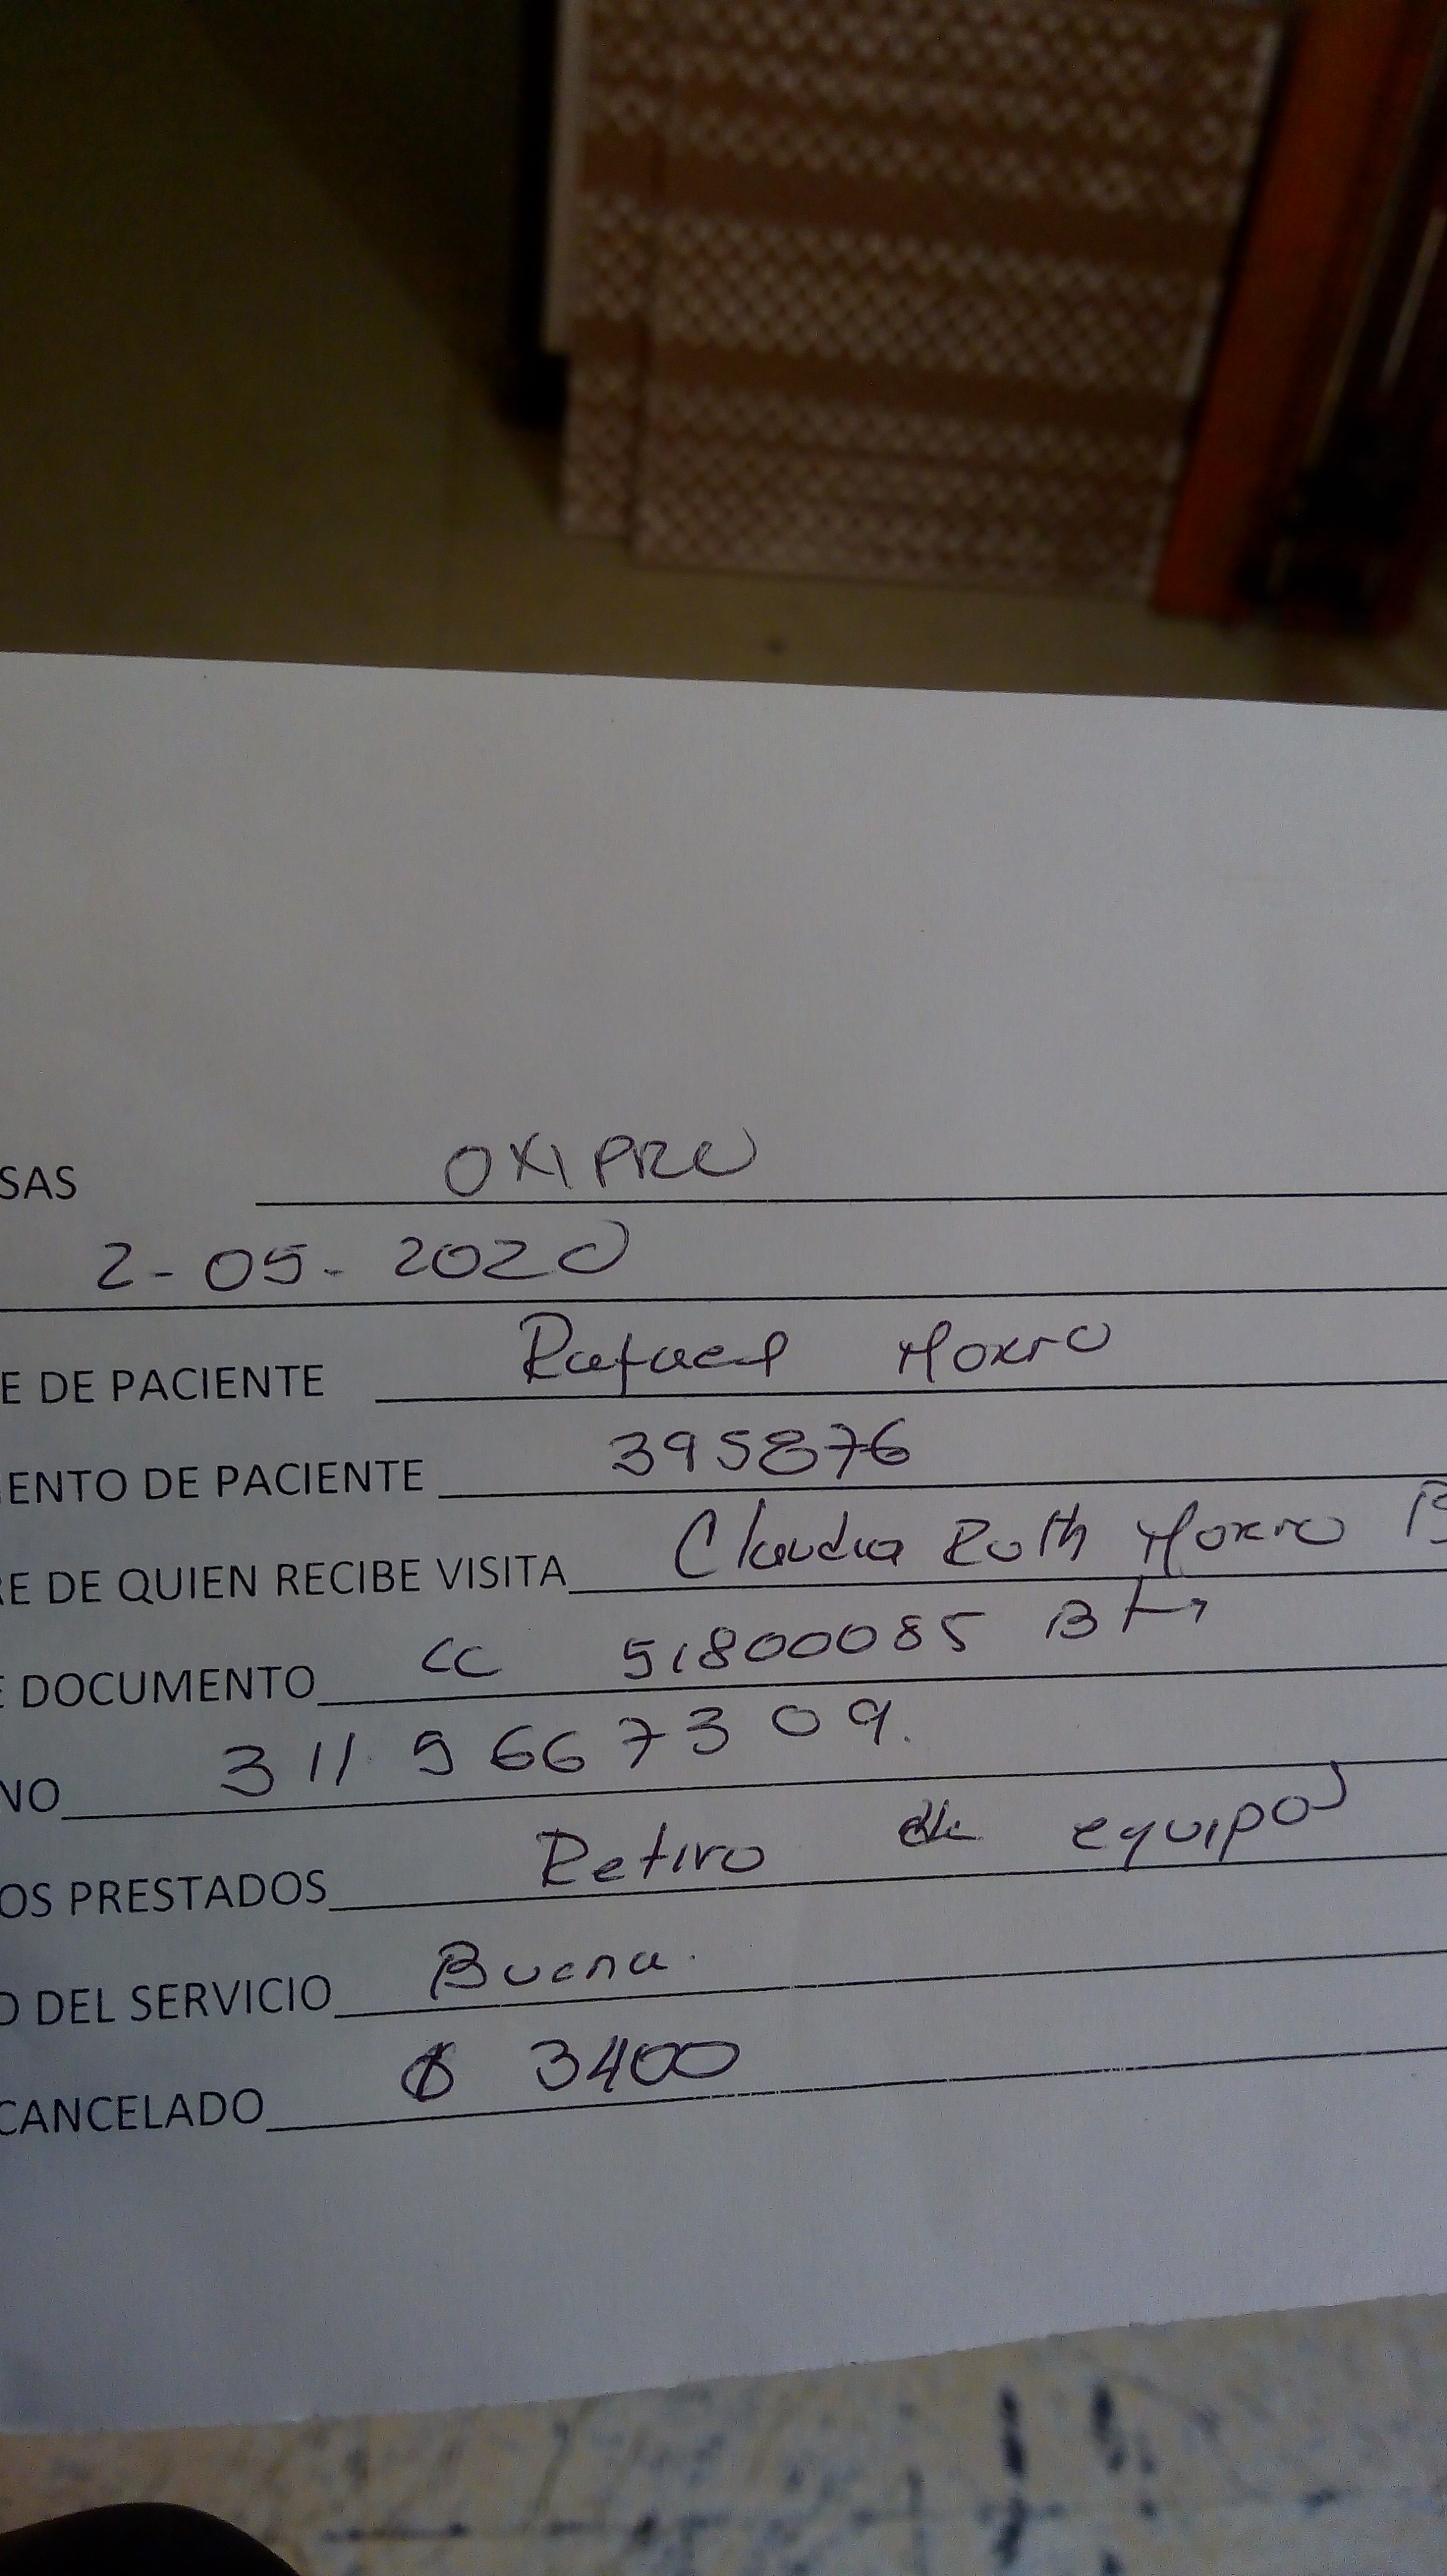 SAS OXIPRO
2-05-2020
E DE PACIENTE Rafael
ENTO DE PACIENTE 395876
RE DE QUIEN RECIBE VISITA Claudia Ruth B
E DOCUMENTO CC 51800085 Bt
NO 311 5667309.
OS PRESTADOS Retiro de equipos
O DEL SERVICIO Buena.
CANCELADO $ 3400